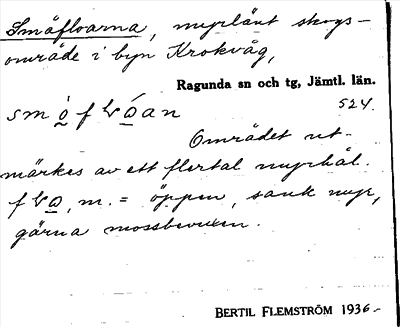 Småfloarna, myrlänt skogs-
område i byn Krokvåg,
Ragunda sn och tg, Jämtl. län.
524.
Området ut-
märkes av ett flertal myrhål.
m. = öppen, sank myr,
gärna mossbevuxen.
BERTIL FLEMSTRÖM 1936.